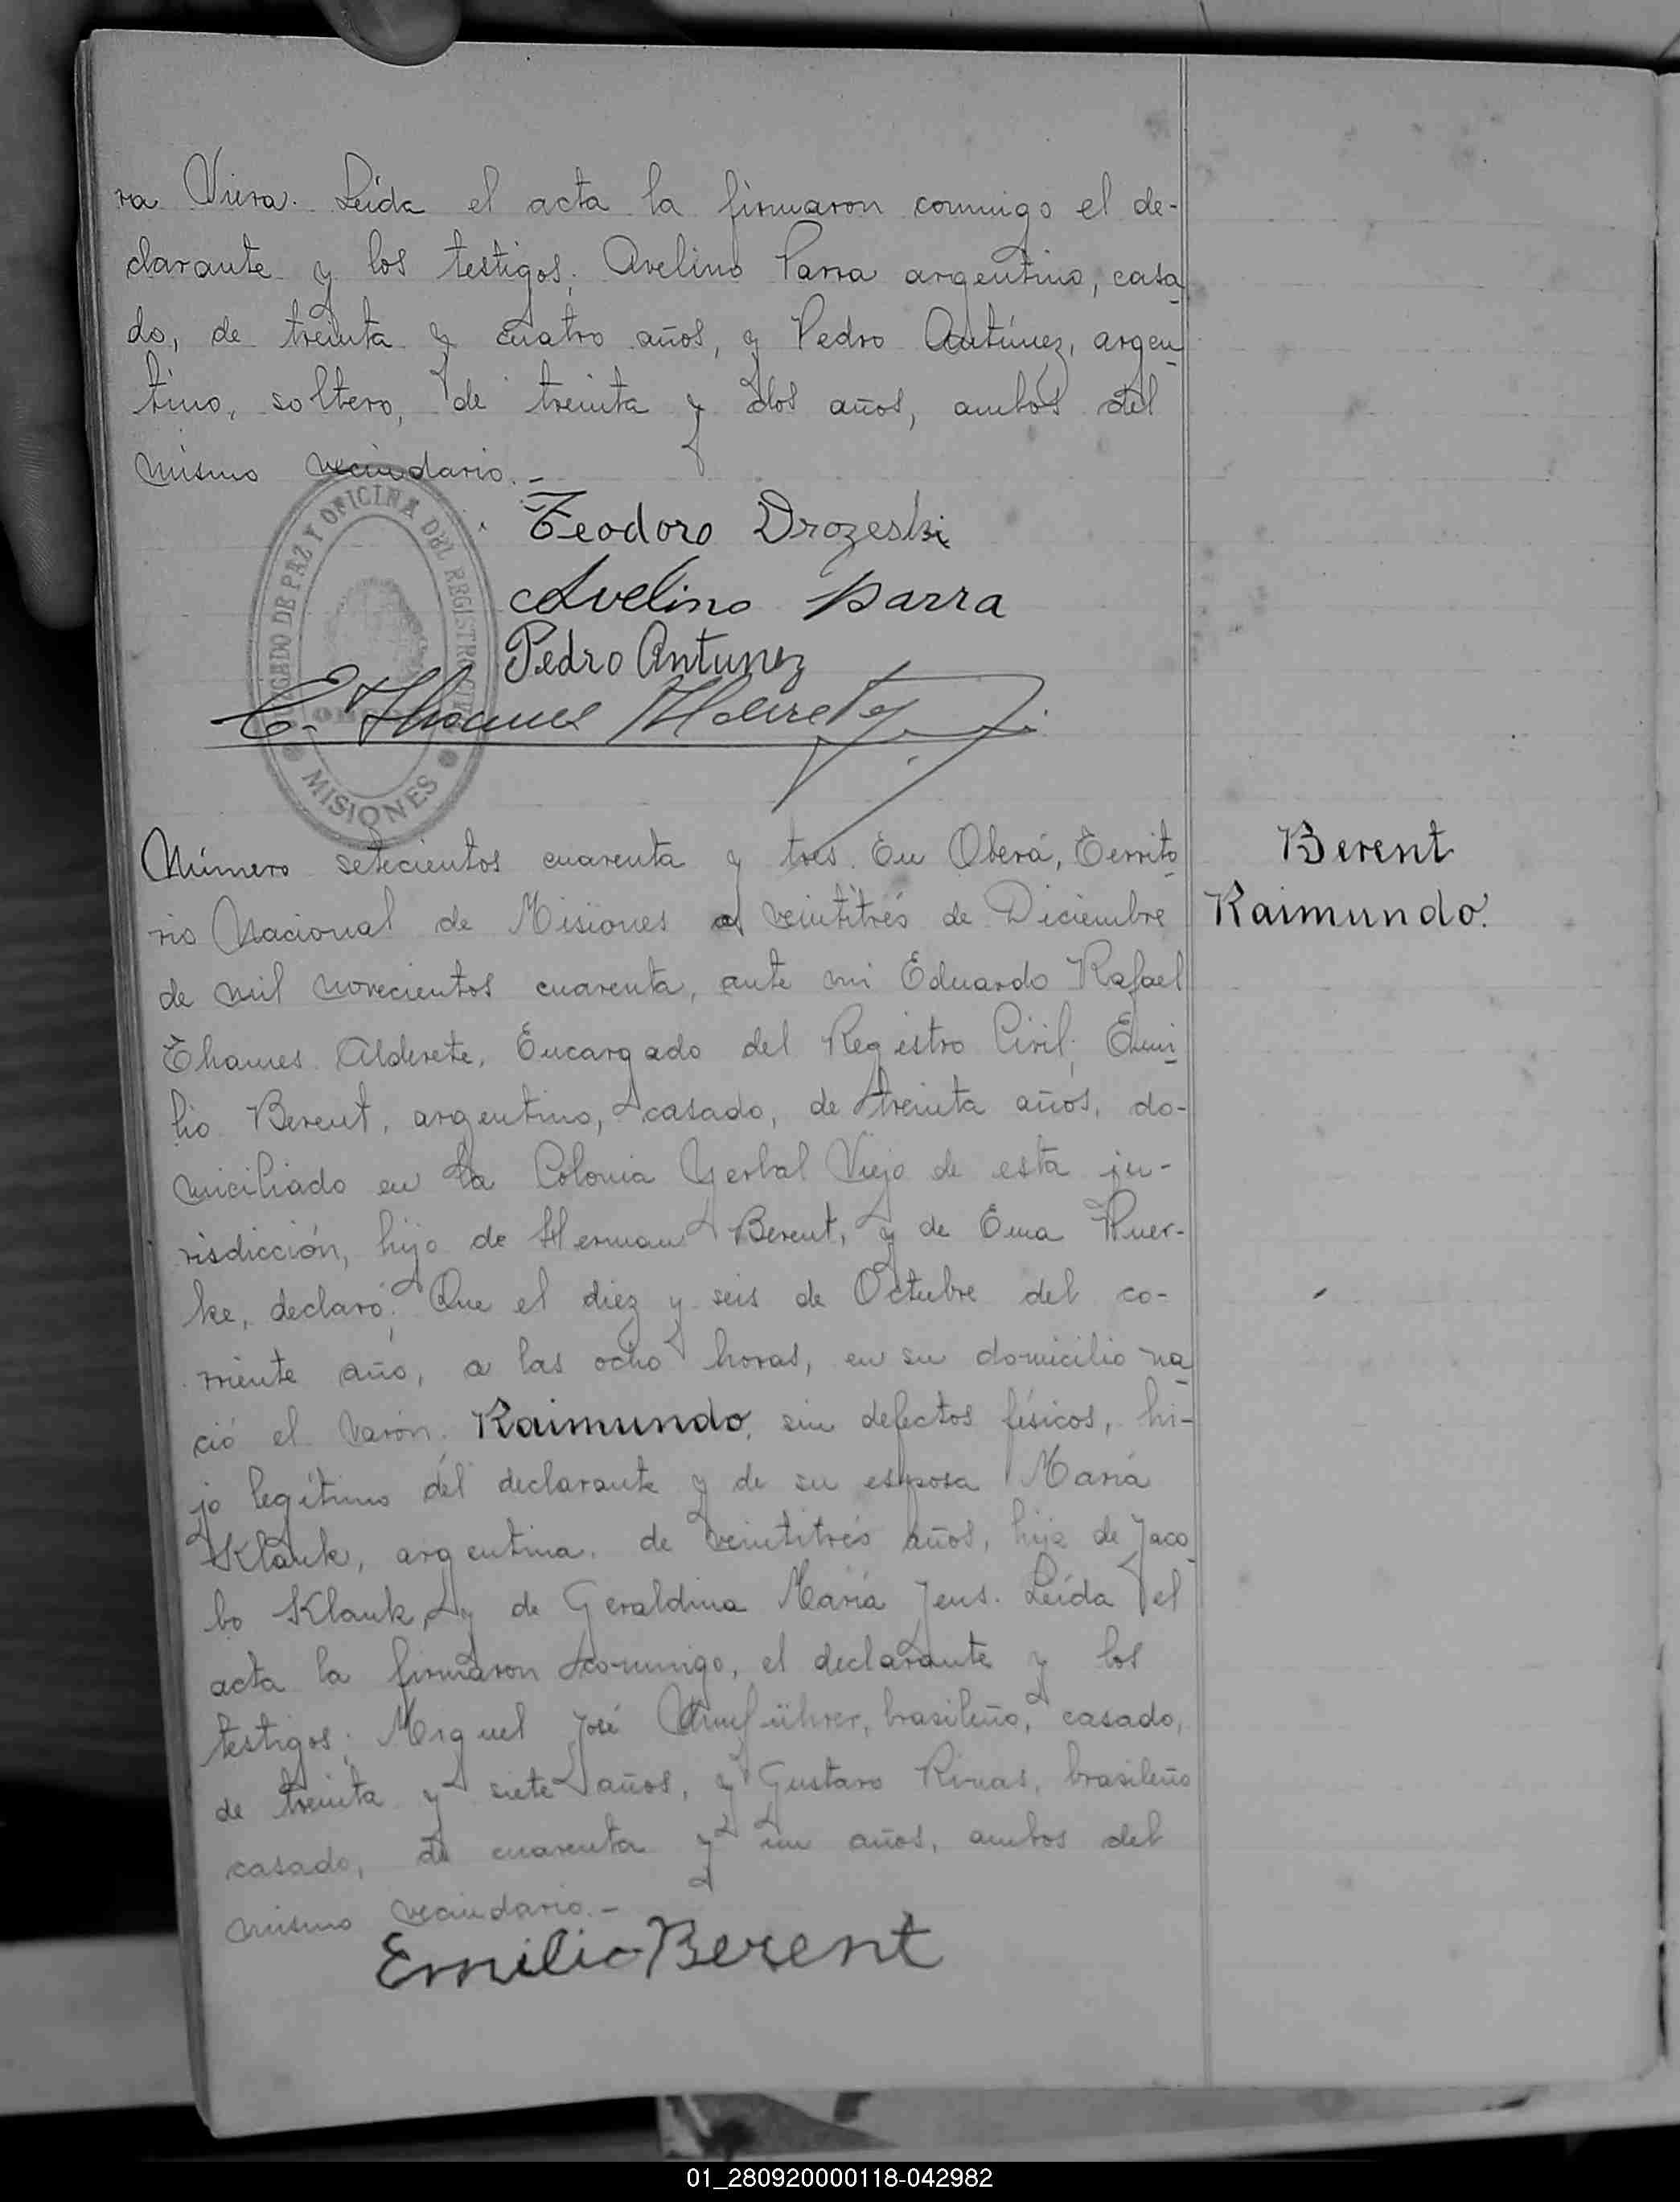 ra Viera. Leída el acta la firmaron conmigo el de-
clarante y los testigos; Avelino Parra argentino, casa
do, de treinta y cuatro años, y Pedro Antúnez, argen
tino, soltero, de treinta y dos años, ambos del
mismo vecindario.-
JUZGADO DE PAZ Y OFICINA DEL REGISTRO CIVIL
MISIONES
Teodoro Drozeski
Avelino Parra
Pedro Antunez
E. Thames Alderete
Número setecientos cuarenta y tres. En Oberá, Territo
rio Nacional de Misiones a veintitrés de Diciembre
de mil novecientos cuarenta, ante mi Eduardo Rafael
Thames Alderete, Encargado del Registro Civil; Emi
lio Berent, argentino, casado, de treinta años, do-
miciliado en la Colonia Yerbal Viejo de esta ju-
risdicción, hijo de Herman Berent, y de Ema Puer-
ke, declaró: Que el diez y seis de Octubre del co-
rriente año, a las ocho horas, en su domicilio na
ció el varón: Raimundo, sin defectos físicos, hi-
jo legítimo del declarante y de su esposa María
Klauk, argentina, de veintitrés años, hija de Jaco
bo Klauk, y de Geraldina María Jens. Leída el
acta la firmaron conmigo, el declarante y los
testigos; Miguel José brasileño, casado,
de treinta y siete años, y Gustavo Rinas, brasileño
casado, de cuarenta y un años, ambos del
mismo vecindario.-
Emilio Berent
Berent
Raimundo.
01_280920000118-042982